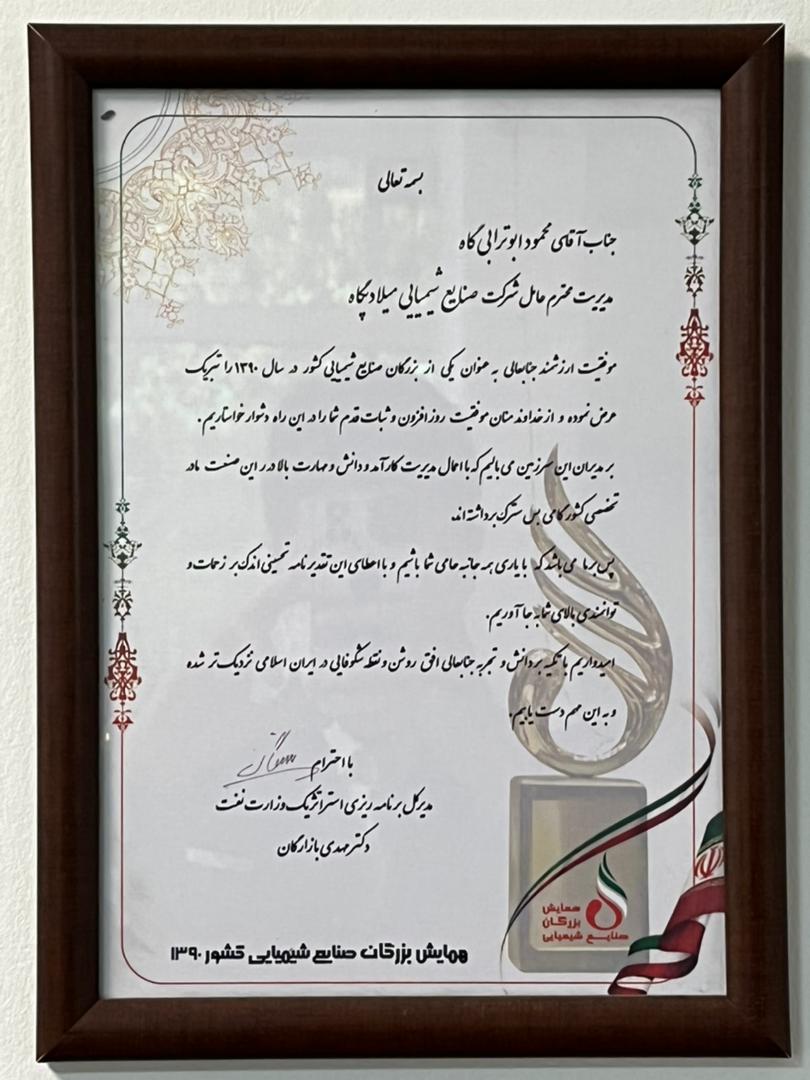 بسمه تعالی
جناب آقای محمود ابوترابی گاه
مدیریت محترم عامل شرکت صنایع شیمیایی میلاد پگاه
موفقیت ارزشمند جنابعالی به عنوان یکی از بزرگان صنایع شیمیایی کشور در سال ۱۳۹۰ را تبریک
عرض نموده و از خداوند منان موفقیت روزافزون و ثبات قدم شما را در این راه دشوار خواستاریم.
بر مدیران این سرزمین می بالیم که با اعمال مدیریت کارآمد و دانش و مهارت بالا در این صنعت مادر
تخصصی کشور گامی بس سترگ برداشته اند.
پس بر ما می باشد که با یاری همه جانبه حامی شما باشیم و با اعطای این تقدیرنامه تحسینی اندک بر زحمات و
توانمندی بالای شما به جا آوریم.
امیدواریم با تکیه بر دانش و تجربه جنابعالی افق روشن و نقطه شکوفایی در ایران اسلامی نزدیک تر شده
و به این مهم دست یابیم.
با احترام
مدیر کل برنامه ریزی استراتژیک وزارت نفت
دکتر مهدی بازارگان
همایش
بزرگان
صنایع شیمیایی
همایش بزرگان صنایع شیمیایی کشور ۱۳۹۰